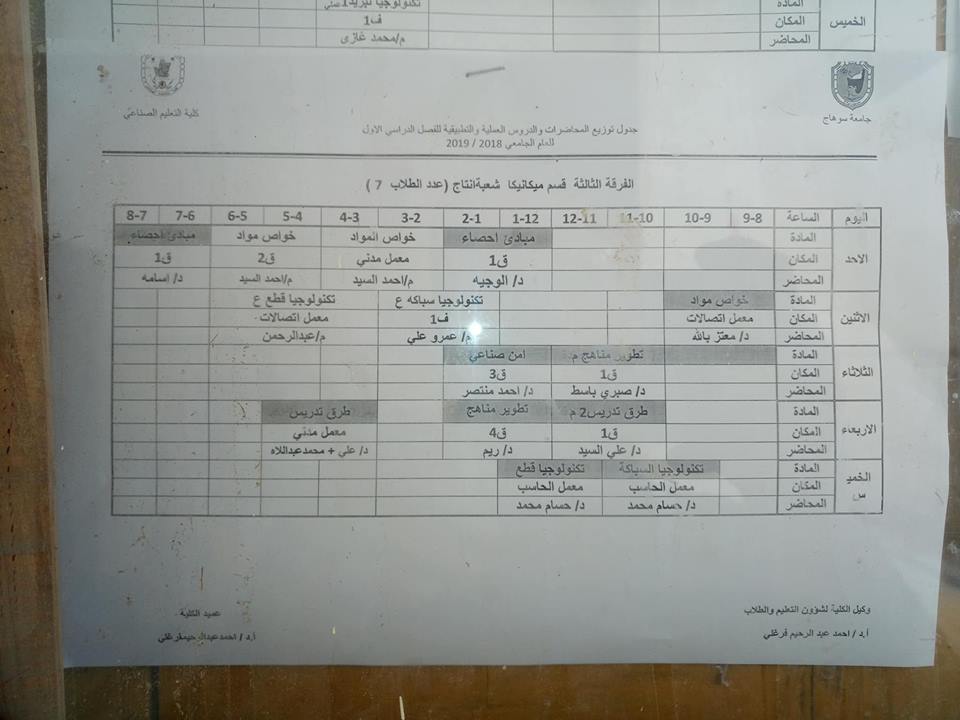 المادة تكنولوجيا تبريد1
الخميس المكان ف1
المحاضر م/محمد غازى
جامعة سوهاج
كلية التعليم الصناعي
جدول توزيع المحاضرات والدروس العملية والتطبيقية للفصل الدراسي الاول
للعام الجامعي 2018 / 2019
الفرقة الثالثة قسم ميكانيكا شعبةانتاج (عدد الطلاب 7 )
اليوم الساعة 9-8 10-9 11-10 12-11 1-12 2-1 3-2 4-3 5-4 6-5 7-6 8-7
المادة مبادئ احصاء خواص المواد خواص مواد مبادئ احصاء
الاحد المكان ق1 معمل مدني ق2 ق1
المحاضر د/ الوجيه م/احمد السيد م/احمد السيد د/ اسامه
المادة خواص مواد تكنولوجيا سباكه ع تكنولوجيا قطع ع
الاثنين المكان معمل اتصالات ف1 معمل اتصالات
المحاضر د/ معتز بالله م/ عمرو علي م/عبدالرحمن
المادة تطوير مناهج م امن صناعي
الثلاثاء المكان ق1 ق3
المحاضر د/ صبري باسط د/ احمد منتصر
المادة طرق تدريس2 م تطوير مناهج طرق تدريس
الاربعاء المكان ق1 ق4 معمل مدني
المحاضر د/ علي السيد د/ ريم د/ علي + محمدعبداللاه
المادة تكنولوجيا السباكة تكنولوجيا قطع
الخميس المكان معمل الحاسب معمل الحاسب
المحاضر د/ حسام محمد د/ حسام محمد
وكيل الكلية لشؤون التعليم والطلاب
عميد الكلية
أ.د / احمد عبد الرحيم فرغلي
أ.د / احمدعبدالرحيمفرغلي